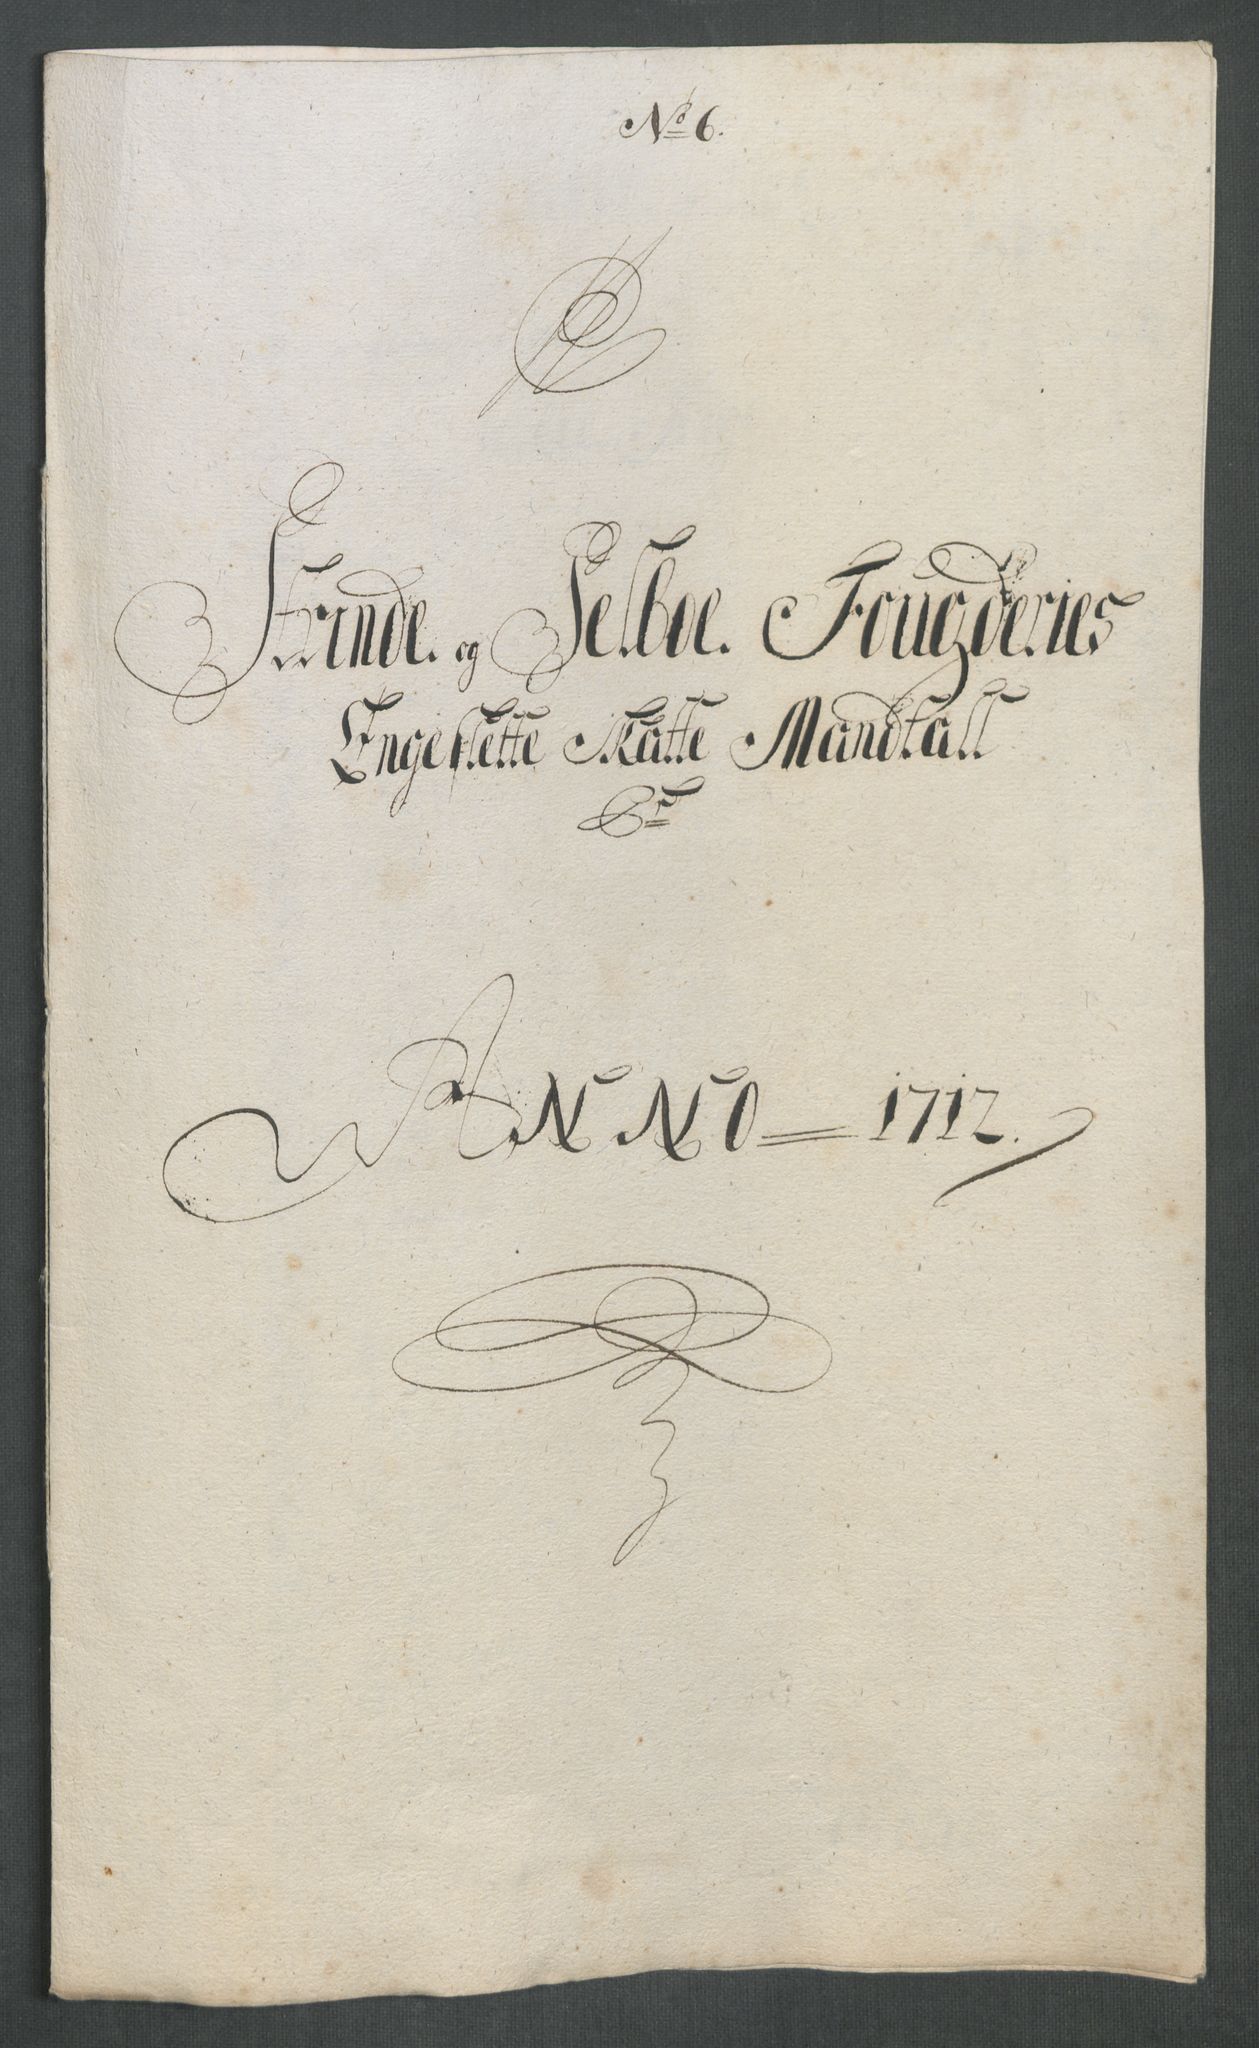 No 6.
Strinde og Selboe Fougderies
Engeslette Skatte Mandtall
Pr
ANNO 1712.